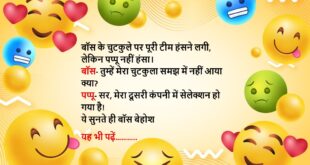 बॉस के चुटकुले पर पूरी टीम हंसने लगी,
लेकिन पप्पू नहीं हंसा।
बॉस- तुम्हें मेरा चुटकुला समझ में नहीं आया
क्या?
पप्पू- सर, मेरा दूसरी कंपनी में सेलेक्शन हो
गया है।
ये सुनते ही बॉस बेहोश
यह भी पढ़ें...........